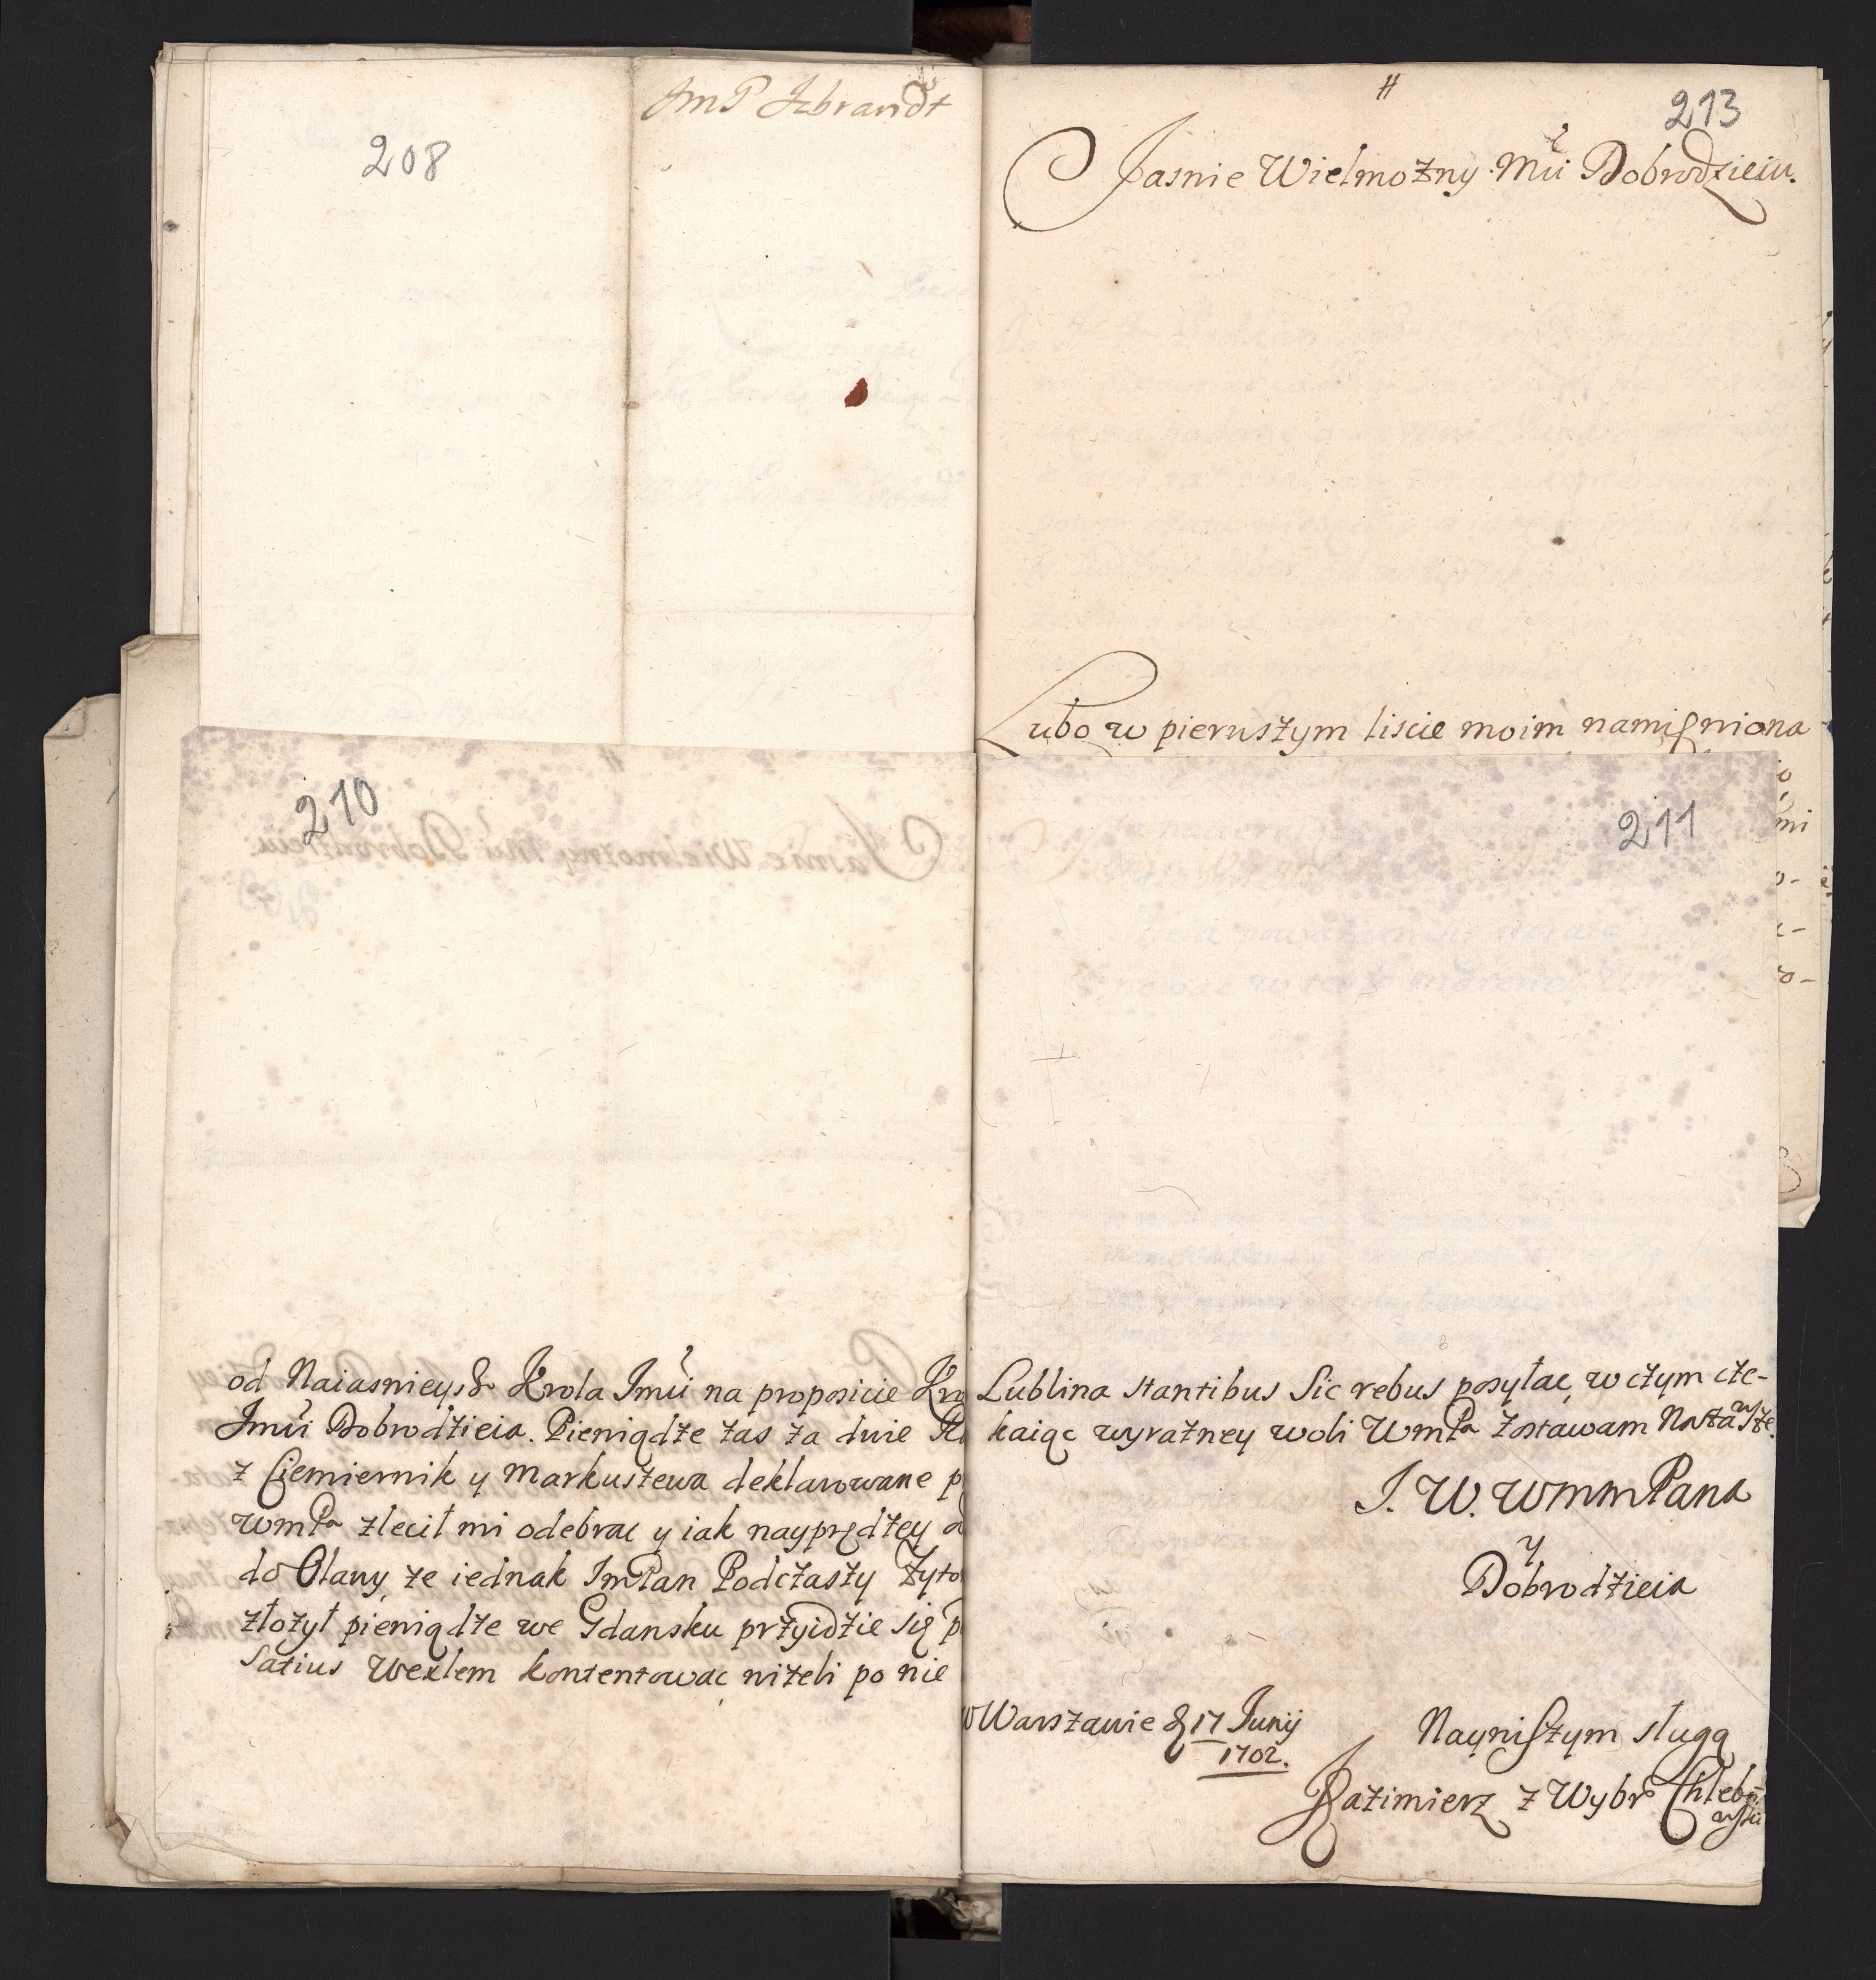 208
JmP Izbrandt
213
Jasnie Wielmożny Mći Dobrodzieiu.
Lubo w pierwszym liscie moim namięniona
210
od Naiasnieyszo Krola Jmći na proposicie Kro
Jmći Dobrodzieia. Pieniądze zas za dwie
z Ciemiernik y Markuszewa deklarowane p
WmPa zlecił mi odebrac y iak nayprędzey
do Oławy, ze iednak JmPan Podczaszy Zyto
złożył pieniądze we Gdansku przyidzie się p
Satius Wexlem kontentowac niżeli po nie
211
Lublina stantibus sic rebus posyłac, w czym cze-
kaiąc wyrazney woli WmPa zostawam
J. W. WmmPana
y
Dobrodzieia
w Warszawie d 17 Junij
1702.
Nayniszym sługą
Kazimierz z Wybr